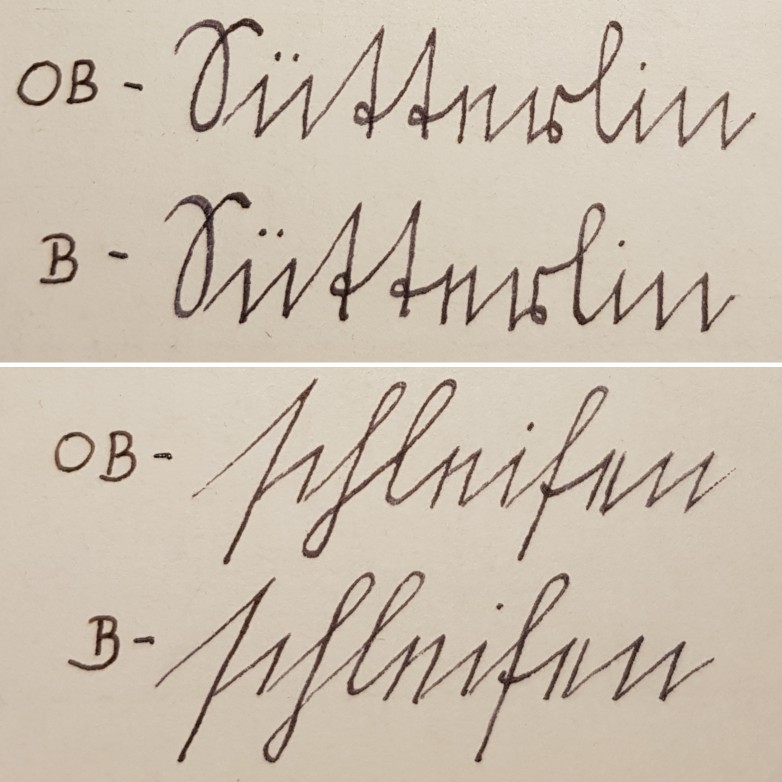 OB - Sütterlin
B - Sütterlin
OB - schleifen
B - schleifen